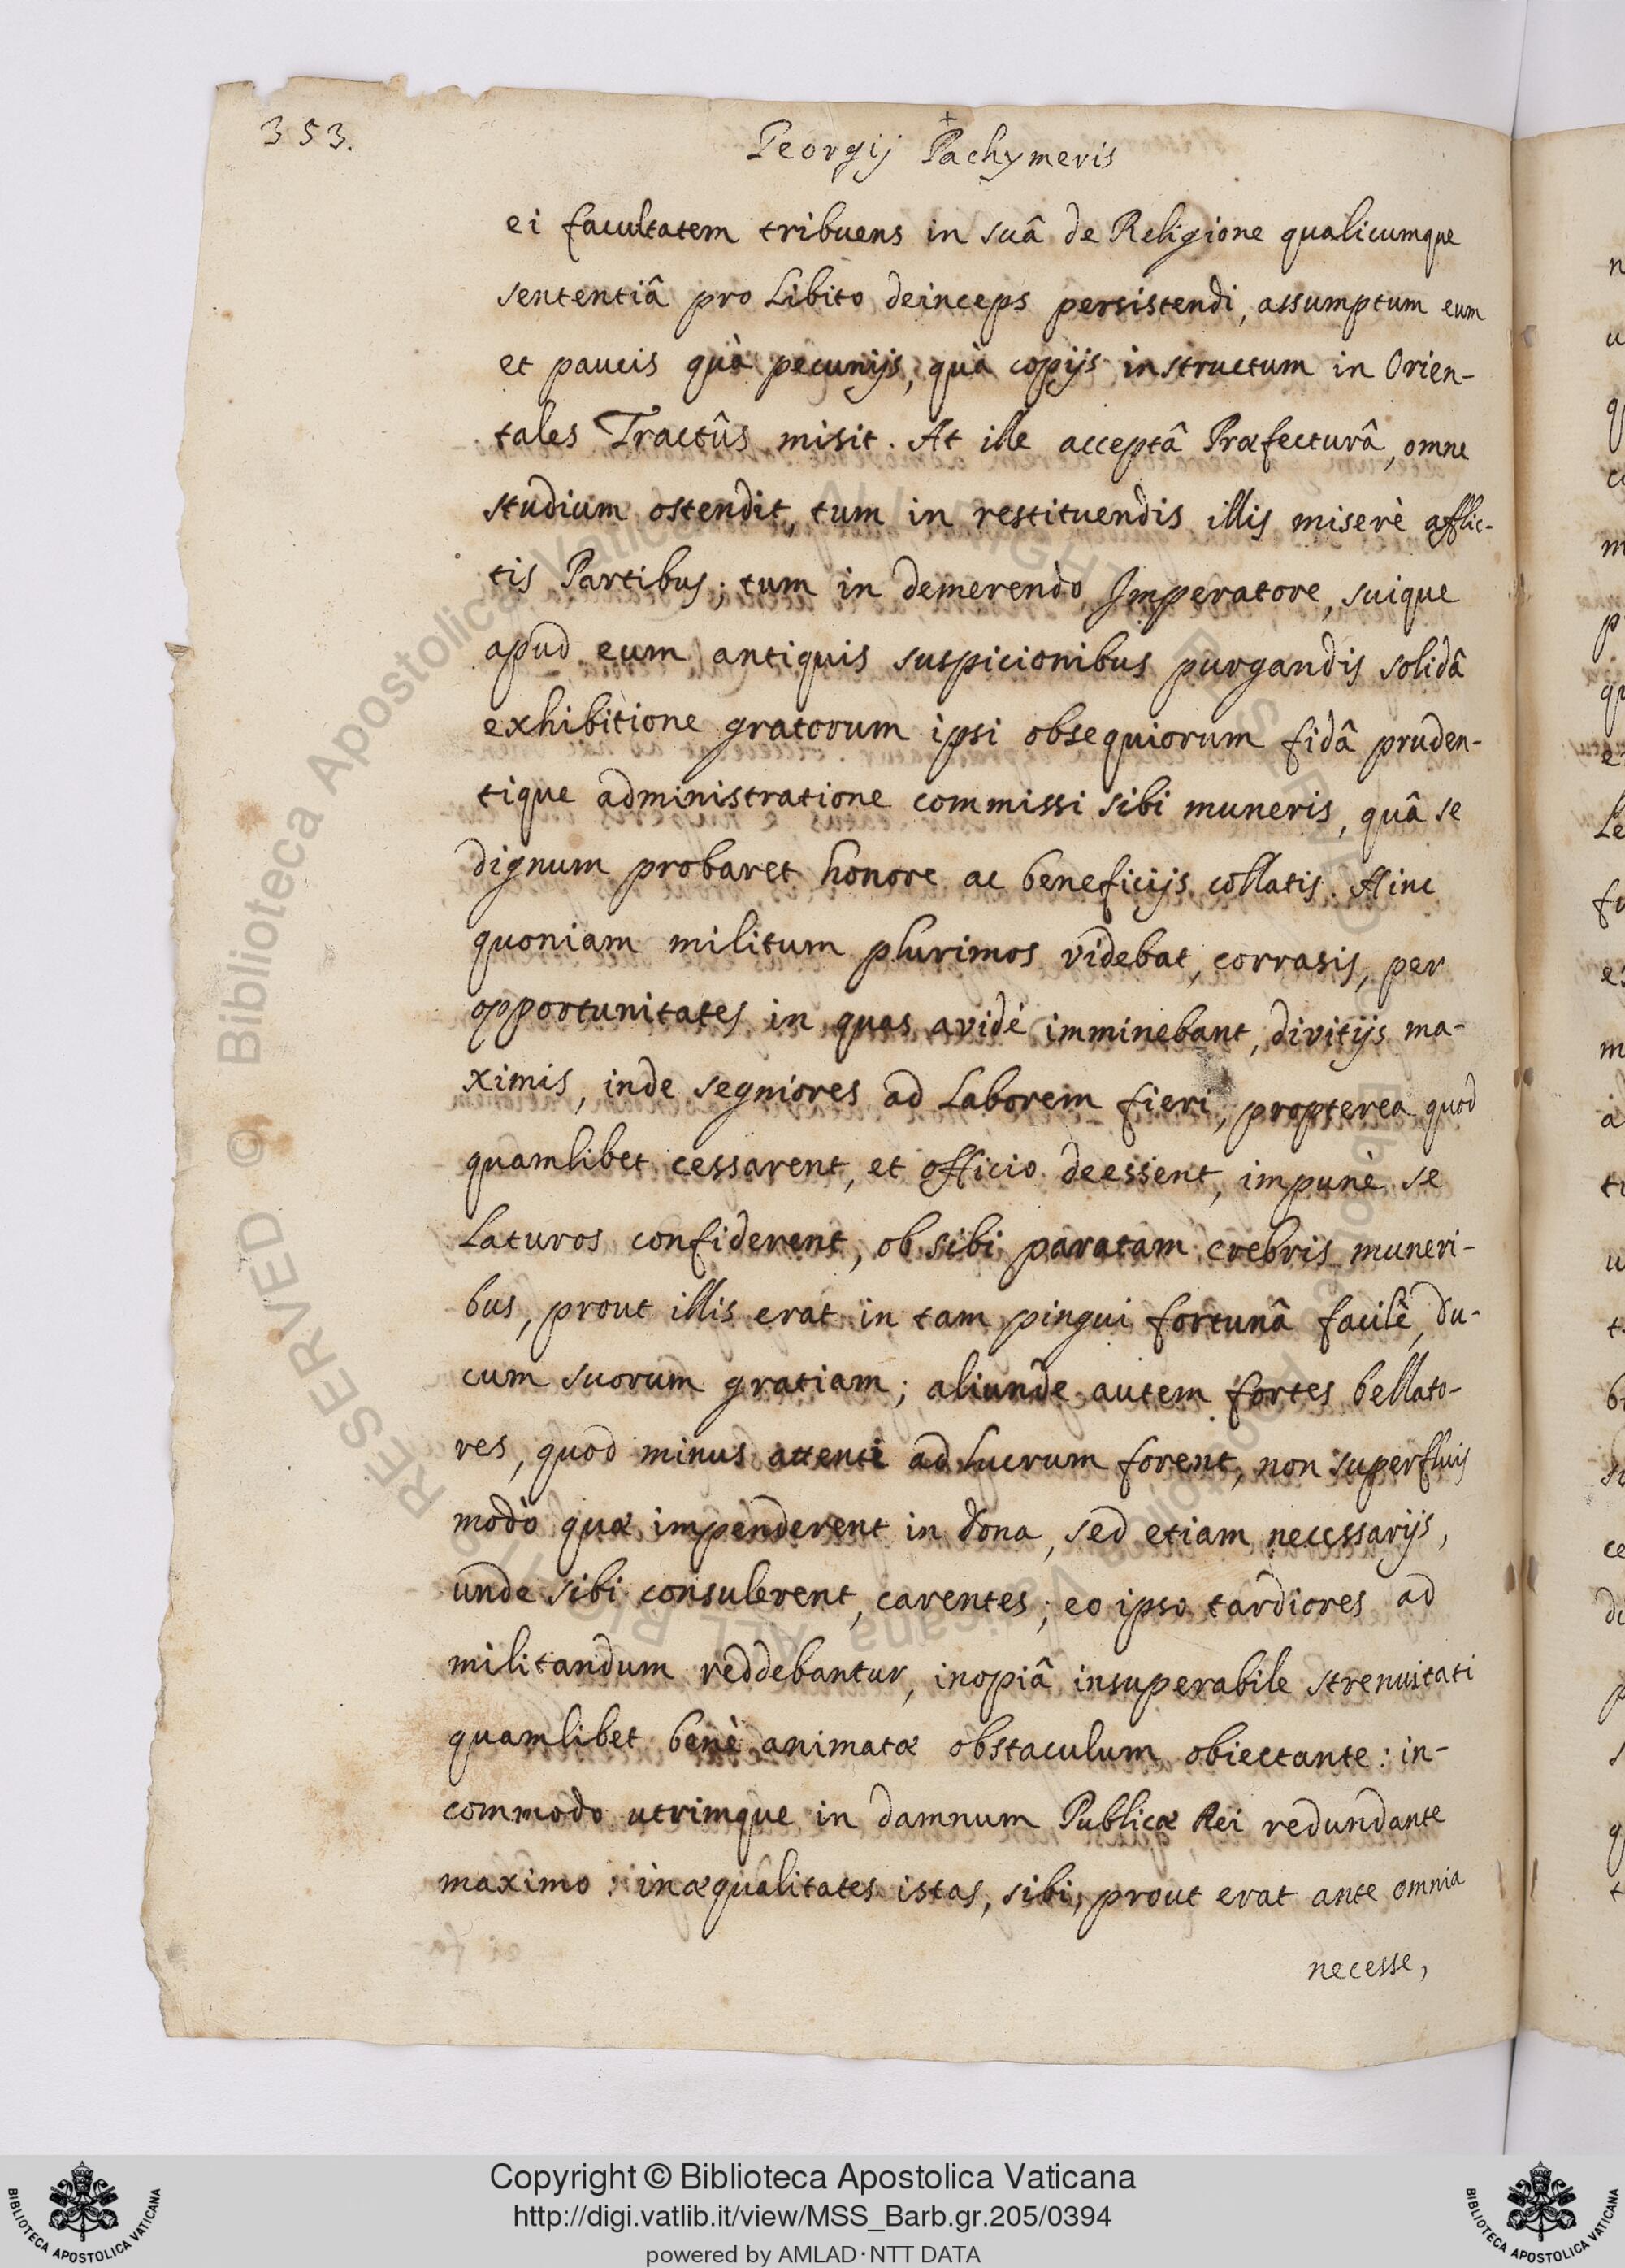 353.
+
Georgij Pachymeris
ei facultatem tribuens in suâ de Religione qualicumque
sententiâ pro Libito deinceps persistendi, assumptum eum
et paucis quà pecunijs, quà copijs instructum in Orien-
tales Tractûs misit. At ille acceptâ Præfecturâ, omne
studium ostendit, tum in restituendis illis miserè afflic-
tis Partibus; tum in demerendo Imperatore, suique
apud eum antiquis suspicionibus purgandis solidâ
exhibitione gratorum ipsi obsequiorum fidâ pruden-
tique administratione commissi sibi muneris, quâ se
dignum probaret honore ac beneficijs collatis. Hinc
quoniam militum plurimos videbat, corrasis, per
opportunitates in quas avidè imminebant, divitijs ma-
ximis, inde segniores ad Laborem fieri, propterea quod
quamlibet cessarent, et officio deessent, impunè se
Laturos confiderent, ob sibi paratam crebris muneri-
bus, prout illis erat in tam pingui fortunâ facilè, du-
cum suorum gratiam; aliunde autem fortes bellato-
res, quod minus attenti ad Lucrum forent, non superfluis
modò quæ impenderent in dona, sed etiam necessarijs,
unde sibi consulerent, carentes; eo ipso tardiores ad
militandum reddebantur, inopiâ insuperabile strenuitati
quamlibet benè animatæ obstaculum obiectante: in-
commodo utrimque in damnum Publicæ Rei redundante
maximo; inæqualitates istas, sibi, prout erat ante omnia
necesse,
Biblioteca Apostolica Vaticana
ALL RIGHTS RESERVED ©
Copyright © Biblioteca Apostolica Vaticana
http://digi.vatlib.it/view/MSS_Barb.gr.205/0394
powered by AMLAD·NTT DATA
BIBLIOTECA APOSTOLICA VATICANA
BIBLIOTECA APOSTOLICA VATICANA